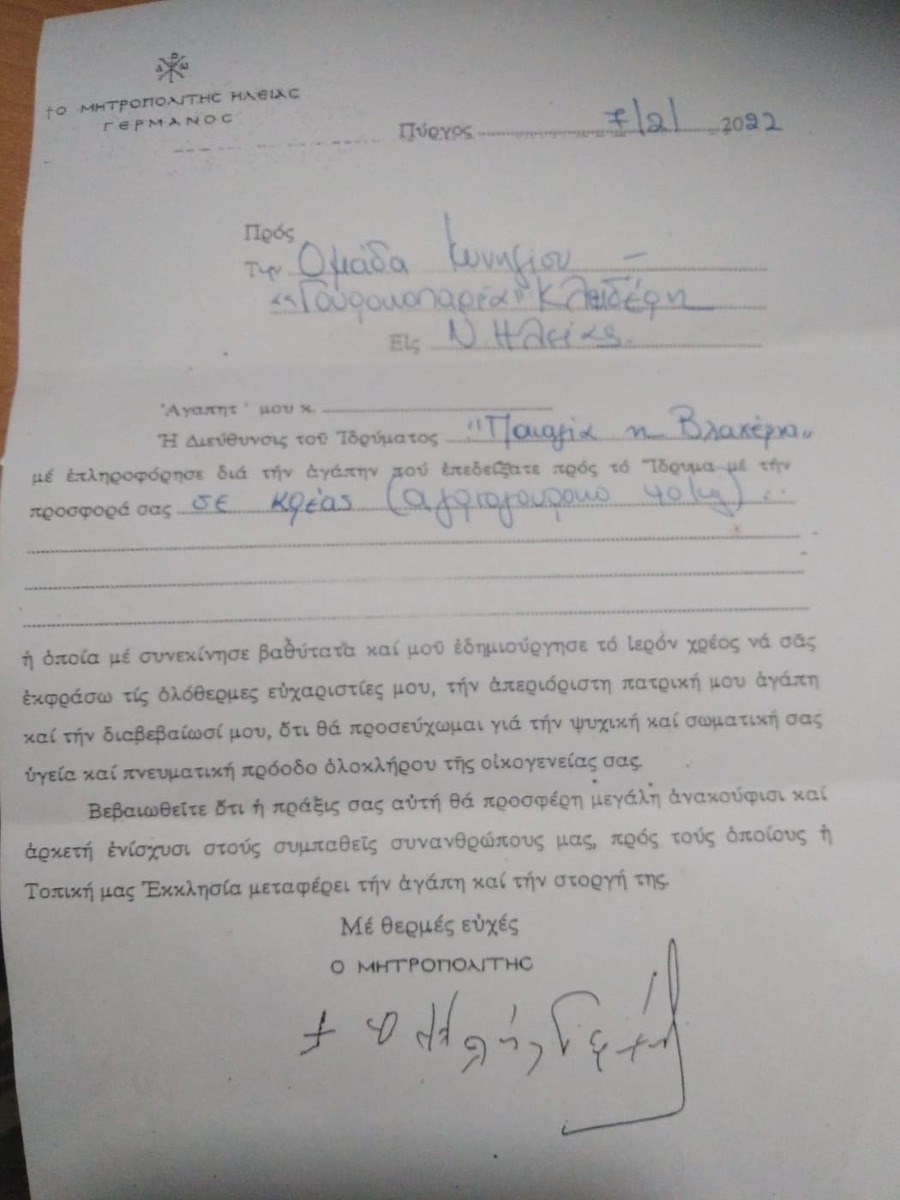 †Ο ΜΗΤΡΟΠΟΛΙΤΗΣ ΗΛΕΙΑΣ
ΓΕΡΜΑΝΟΣ
Πύργος 7/2/ 2022
Πρός
Τήν Ομάδα Κυνηγίου –
«Γουρουνοπαρέα» Κλειδέρη
Εἰς Ν. Ηλείας.
Ἀγαπητ ᾿ μου κ.
Ἡ Διεύθυνσις τοῦ Ἱδρύματος "Παναγία η Βλαχέρνα"
μέ ἐπληροφόρησε διά τήν ἀγάπην πού ἐπεδείξατε πρός τό Ἵδρυμα μέ τήν
προσφορά σας σε κρέας (αγριογούρουνο 40 kg)
ἡ ὁποία μέ συνεκίνησε βαθύτατα καί μοῦ ἐδημιούργησε τό ἱερόν χρέος νά σᾶς
ἐκφράσω τίς ὁλόθερμες εὐχαριστίες μου, τήν ἀπεριόριστη πατρική μου ἀγάπη
καί τήν διαβεβαίωσί μου, ὅτι θά προσεύχωμαι γιά τήν ψυχική καί σωματική σας
ὑγεία καί πνευματική πρόοδο ὁλοκλήρου τῆς οἰκογενείας σας.
Βεβαιωθεῖτε ὅτι ἡ πρᾶξις σας αὐτή θά προσφέρη μεγάλη ἀνακούφισι καί
ἀρκετή ἐνίσχυσι στούς συμπαθεῖς συνανθρώπους μας, πρός τούς ὁποίους ἡ
Τοπική μας Ἐκκλησία μεταφέρει τήν ἀγάπη καί τήν στοργή της.
Μέ θερμές εὐχές
Ο ΜΗΤΡΟΠΟΛΙΤΗΣ